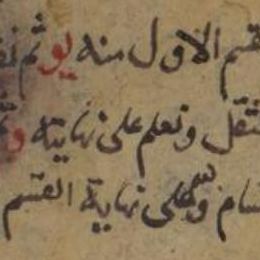 قسم الاول منه يو ثم
ـثقل ونعلم على نهايته و
ـسام وعلى نهاية القسم